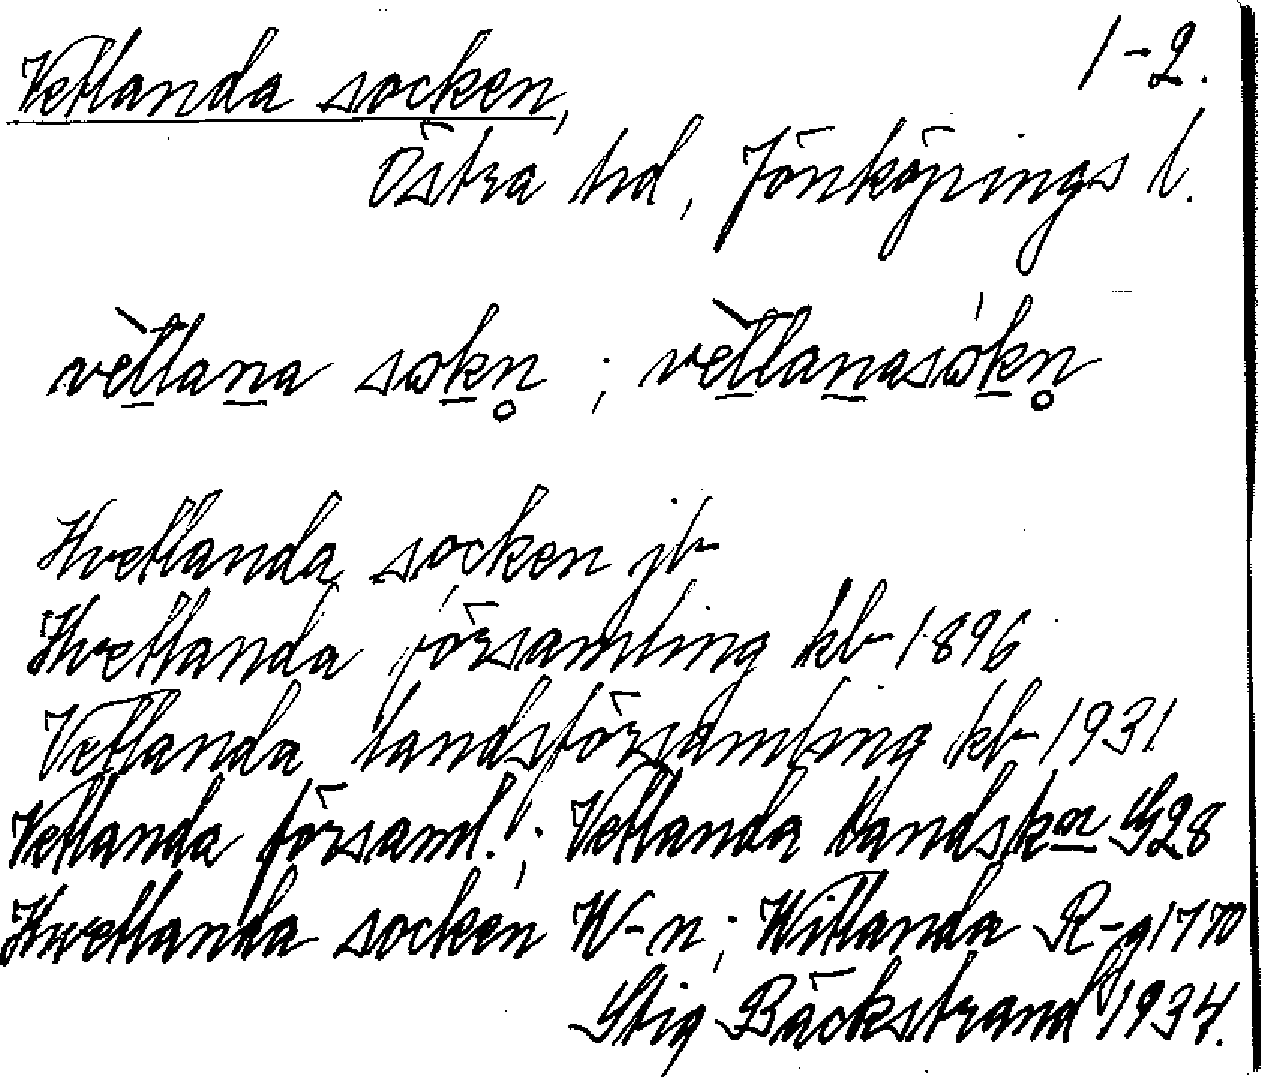 Vetlanda socken, 1-2.
Östra hd, Jönköpings l.
vètlana sɷkn̥ ; vètlanasɷ́kn̥
Hvetlanda socken jb
Hvetlanda församling kb 1896
Vetlanda landsförsamling kb 1931
Vetlanda församl.; Vetlanda landsk:a G28
Hwetlanda socken W-n; Witlanda R-g 1770
Stig Bäckstrand 1934.